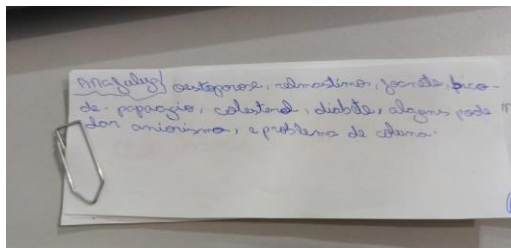 oesteoporose, reumastimo, joanete, bico-
de-papagaio, colesterol, diabite, alguns pode
dar aniorismo, e problema de coluna.